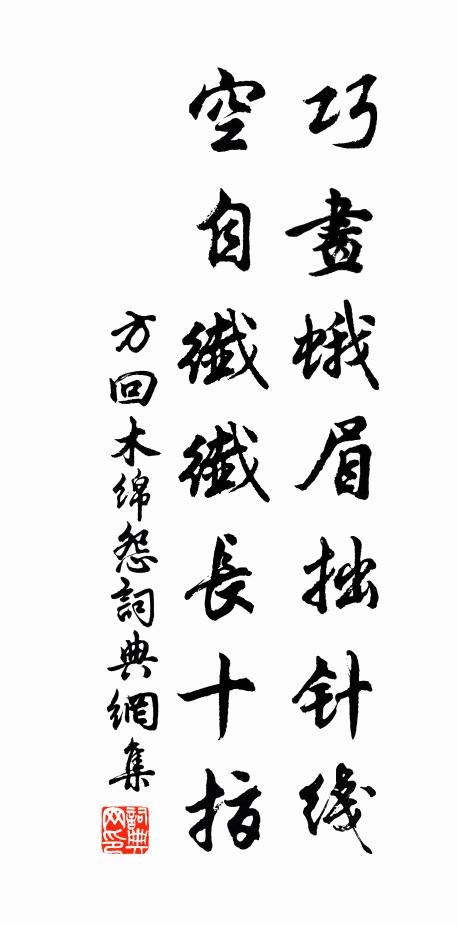 巧畫蛾眉拙针线
空自纖纖長十指
方回木绵怨詞典網集
詞典网印